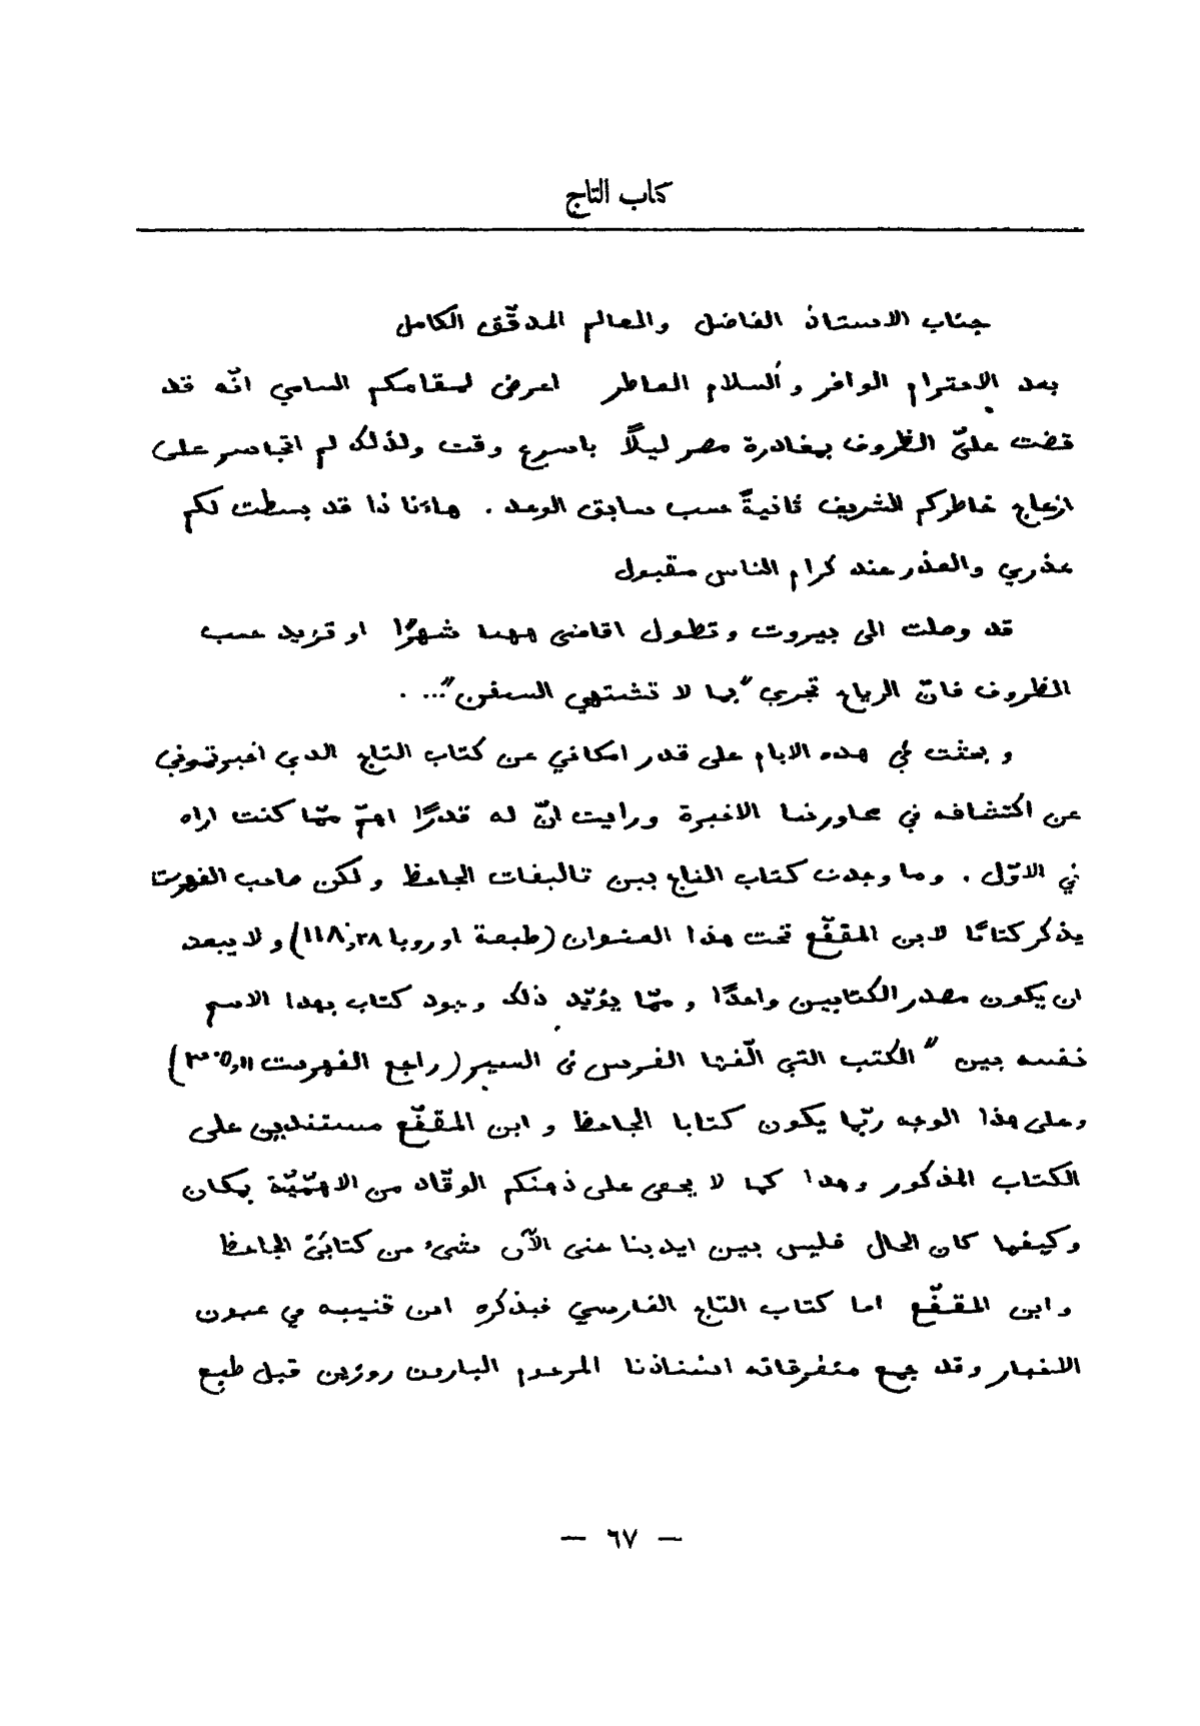 كتاب التاج
جناب الاستاذ الفاضل والعالم المدقّق الكامل
بعد الاحترام الوافر وألسلام العاطر اعرض لمقامكم السامي انّه قد
قضت عليّ الظروف بمغادرة مصر ليلًا باسرع وقت ولذلك لم اتجاسر على
ازعاج خاطركم الشريف ثانيةً حسب سابق الوعد . هاءنا ذا قد بسطت لكم
عذري والعذر عند كرام الناس مقبول
قد وصلت الى بيروت وتطول اقامتى ههنا شهرًا او تزيد حسب
الظروف فانّ الرياح تجري "بما لا تشتهي السفن"... .
و بحثت في هذه الايام على قدر امكاني عن كتاب التاج الذي اخبرتموني
عن اكتشافه في محاورتنا الاخيرة ورايت انّ له قدرًا اهمّ ممّا كنت اراه
في الاوّل . وما وجدت كتاب التاج بين تاليفات الجاحظ ولكن صاحب الفهرست
يذكر كتابًا لابن المقفّع تحت هذا العنوان (طبعة اوروبا ١١٨,٢٨) ولا يبعد
ان يكون مصدر الكتابين واحدًا وممّا يؤيّد ذلك وجود كتاب بهذا الاسم
نفسه بين "الكتب التي الّفها الفرس في السير (راجع الفهرست ٣٠٥,١١)
وعلى هذا الوجه ربّما يكون كتابا الجاحظ و ابن المقفّع مستندين على
الكتاب المذكور وهذا كما لا يخفى على ذهنكم الوقّاد من الاهمّيّة بمكان
وكيفما كان الحال فليس بين ايدينا حتى الآن شيء من كتابَيْ الجاحظ
وابن المقفّع اما كتاب التاج الفارسي فيذكره ابن قتيبه في عيون
الاخبار وقد جمع متفرقاته استاذنا المرحوم البارون روزين قبل طبع
— ٦٧ —